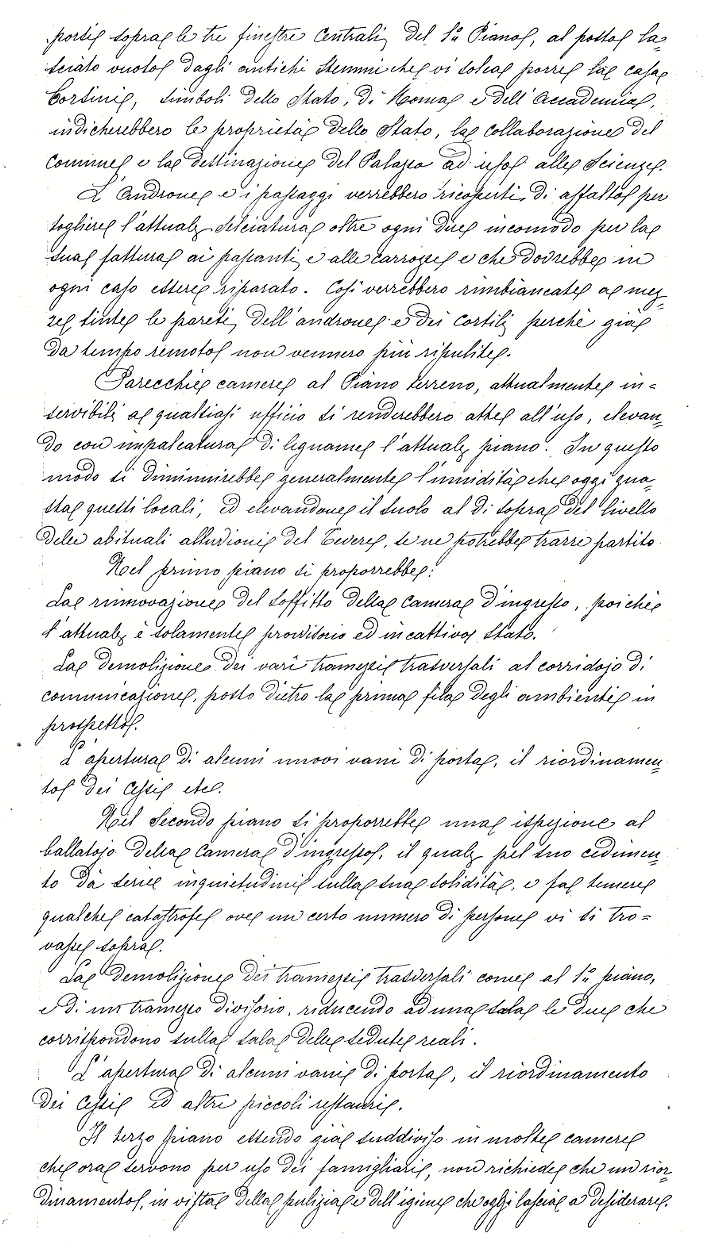 porsi sopra le tre finestre centrali, del 1º Piano, al posto la=
sciato vuoto dagli antichi stemmi che vi solea porre la casa
Corsini, simboli dello Stato, di Roma e dell'Accademia,
indicherebbero la proprietà dello Stato, la collaborazione del
comune e la destinazione del Palazzo ad uso alle Scienze.
L'Androne e i passaggi verrebbero ricoperti di asfalto per
togliere l'attuale selciatura oltre ogni dire incomodo per la
sua fattura ai passanti, e alle carrozze e che dovrebbe in
ogni caso essere riparato. Così verrebbero rimbiancate a mez=
ze tinte le pareti, dell'androne e dei cortili, perchè già
da tempo remoto non vennero più ripulite.
Parecchie camere al Piano terreno, attualmente in=
servibili a qualsiasi ufficio si renderebbero atte all'uso, elevan=
do con impalcatura di legname l'attuale piano. In questo
modo si diminuirebbe generalmente l'umidità che oggi gua=
sta questi locali, ed elevandone il suolo al di sopra del livello
delle abituali alluvioni del Tevere, se ne potrebbe trarre partito
Nel primo piano si proporrebbe:
La rinnovazione del soffitto della camera d'ingresso, poichè
l'attuale è solamente provvisorio ed in cattivo stato.
La demolizione dei vari tramezzi trasversali al corridojo di
comunicazione, posto dietro la prima fila degli ambienti in
prospetto.
L'apertura di alcuni nuovi vani di porta, il riordinamen=
to dei cessi etc.
Nel Secondo piano si proporrebbe una ispezione al
ballatojo della camera d'ingresso, il quale pel suo cedimen=
to dà serie inquietudini sulla sua solidità, e fa temere
qualche catastrofe ove un certo numero di persone vi si tro=
vasse sopra.
La demolizione dei tramezzi trasversali come al 1º piano,
e di un tramezzo divisorio, riducendo ad una sala le due che
corrispondono sulla sala delle sedute reali.
L'apertura di alcuni vani di porta, il riordinamento
dei cessi ed altri piccoli restauri.
Il terzo piano essendo già suddiviso in molte camere
che ora servono per uso dei famigliari, non richiede che un rior=
dinamento, in vista della pulizia e dell'igiene che oggi lascia a desiderare.